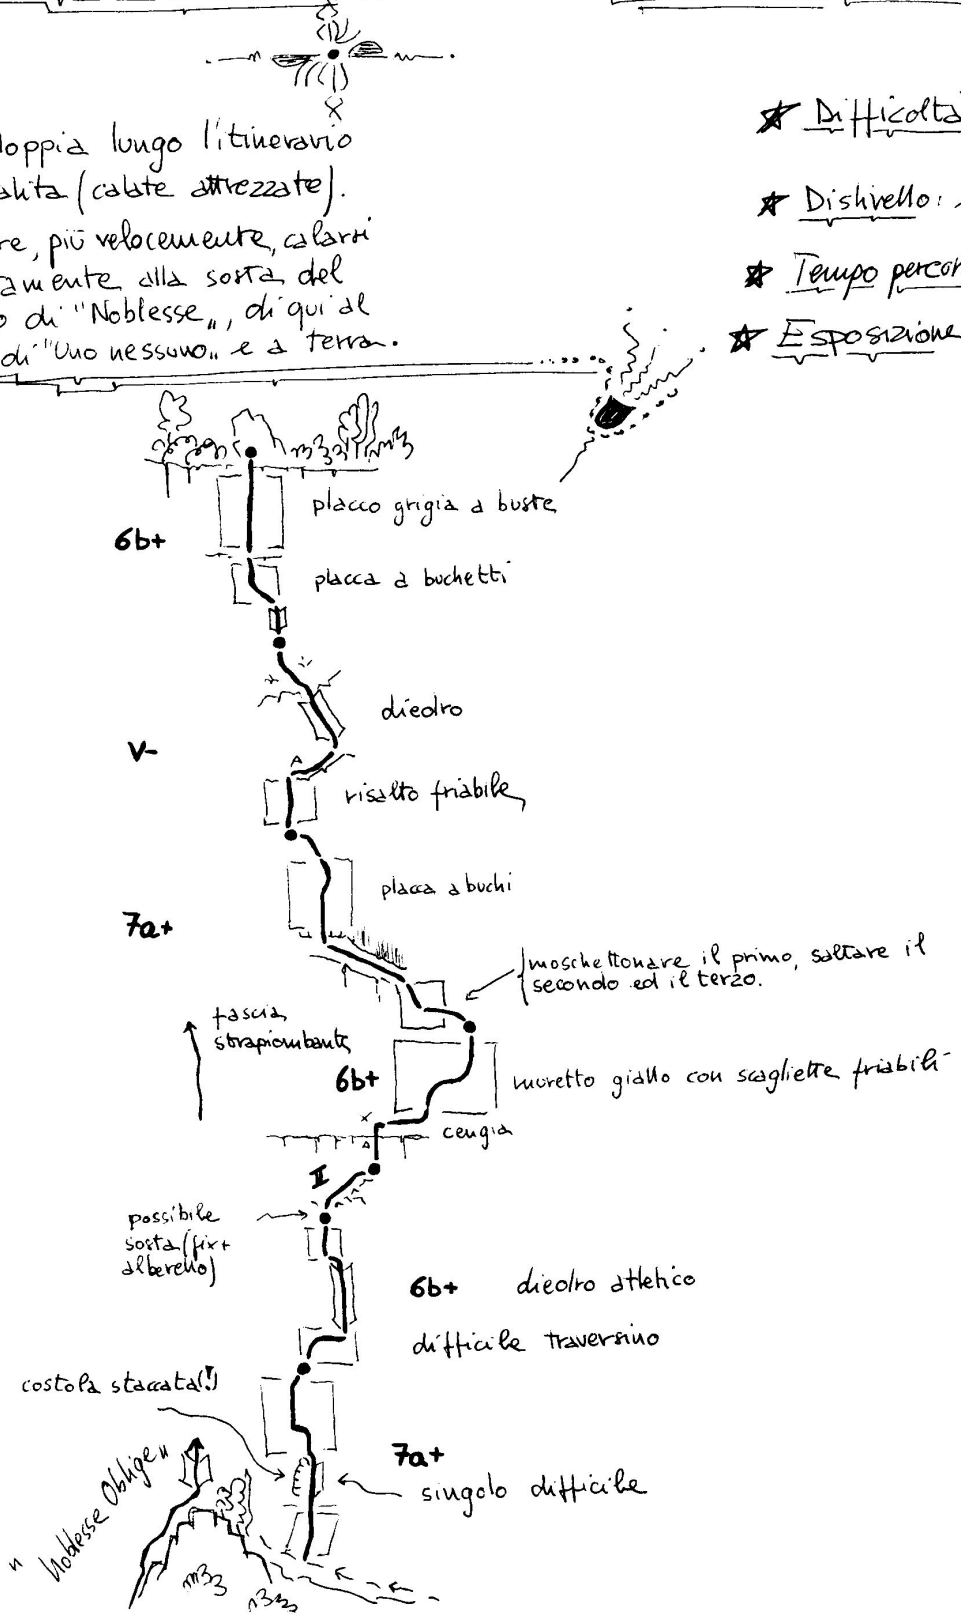 doppia lungo l'itinerario
alita (calate attrezzate).
re, più velocemente, calarsi
amente alla sosta del
o di "Noblesse", di qui al
di "Uno nessuno" e a terra.
★ Difficoltà
★ Dislivello:
★ Tempo percor
★ Esposizione
placca grigia a buste
6b+
placca a buchetti
diedro
V-
risalto friabile
placca a buchi
7a+
moschettonare il primo, saltare il
secondo ed il terzo.
fascia
strapiombante
6b+
muretto giallo con scagliette friabili
cengia
II
possibile
sosta (fix+
alberello)
6b+ diedro atletico
difficile traversino
costola staccata (!)
7a+
singolo difficile
"Noblesse Oblige"